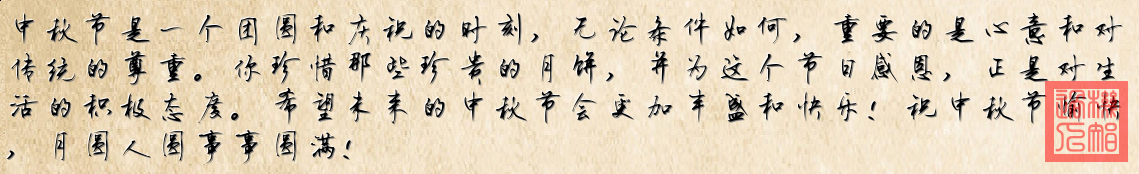 中秋节是一个团圆和庆祝的时刻，无论条件如何，重要的是心意和对
传统的尊重。你珍惜那些珍贵的月饼，并为这个节日感恩，正是对生
活的积极态度。希望未来的中秋节会更加丰盛和快乐！祝中秋节愉快
，月圆人圆事事圆满！